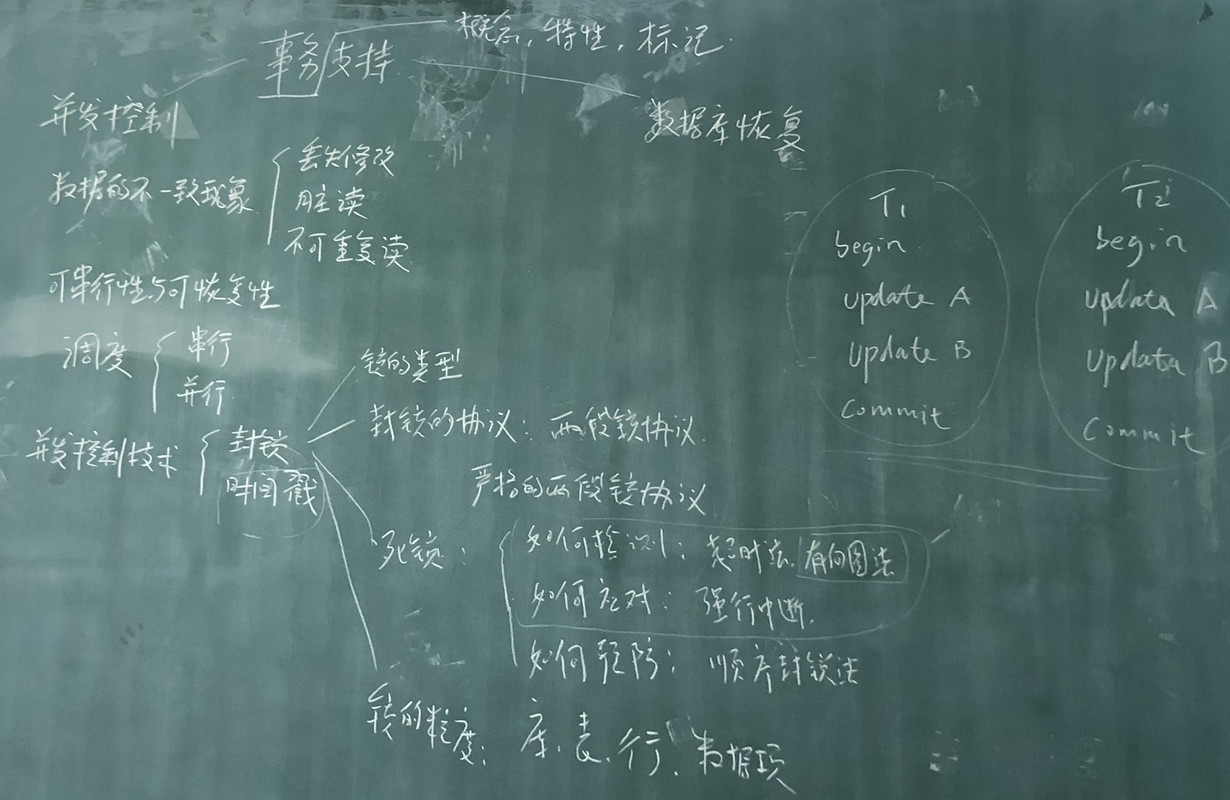 事务支持
概念，特性，标记.
并发控制
数据库恢复
数据的不一致现象
丢失修改
脏读
不可重复读
可串行性与可恢复性
调度
串行
并行
并发控制技术
封锁
时间戳
锁的类型
封锁的协议：两段锁协议.
严格的两段锁协议
死锁：
如何检测：超时法.有向图法
如何应对：强行中断.
如何预防：顺序封锁法
锁的粒度：库.表.行.数据项
T1
begin
update A
update B
commit
T2
begin
updata A
updata B
commit